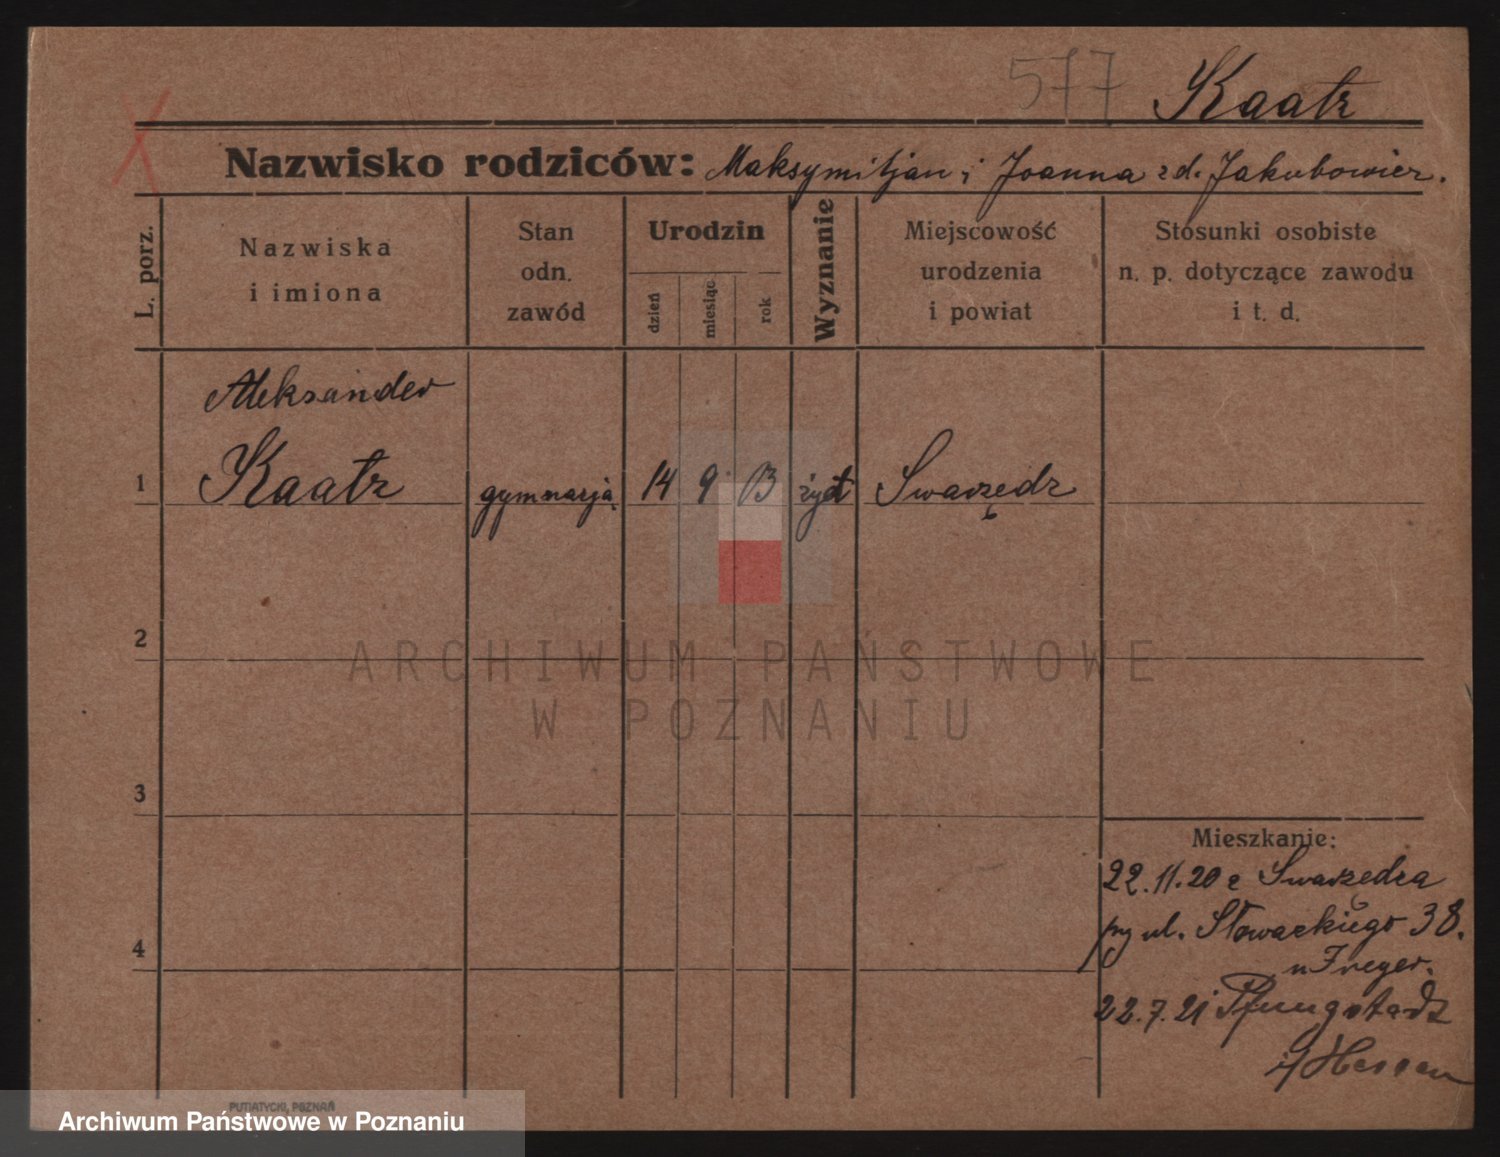 577 Kaatz
Nazwisko rodziców: Maksymiljan i Joanna z d. Jakubowicz.
L. porz.
Nazwiska
i imiona
Stan
odn.
zawód
Urodzin
dzień
miesiąc
rok
Wyznanie
Miejscowość
urodzenia
i powiat
Stosunki osobiste
n. p. dotyczące zawodu
i t. d.
Aleksander
1 Kaatz gymnazją 14 9 03 żyd Swarzędz
2
ARCHIWUM PAŃSTWOWE
W POZNANIU
3
Mieszkanie:
22.11.20 z Swarzędza
przy ul. Słowackiego 38.
4
u Freyer.
22.7.21 Pfungstadt
i/Hessen
PUTIATYCKI, POZNAŃ
Archiwum Państwowe w Poznaniu